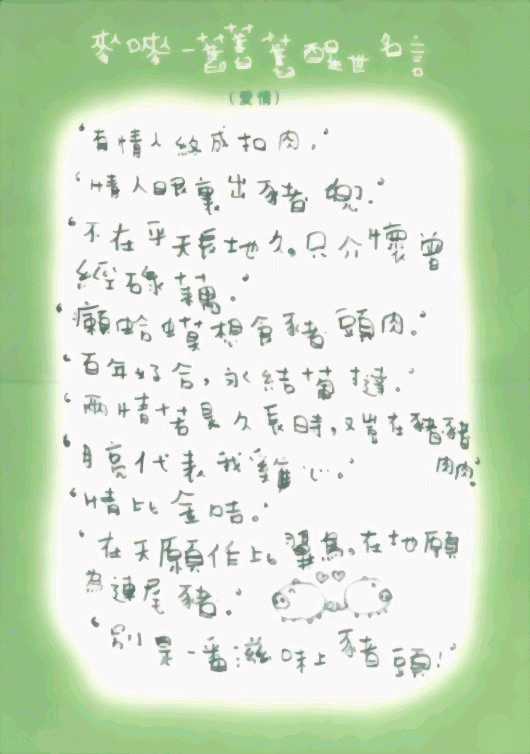 麥嘜一舊舊舊醒世名言
(愛情)
‘有情人終成扣肉。’
‘情人眼裏出豬䏙.’
‘不在乎天長地久。只介懷曾
經碌藕。’
‘癩蛤蟆想食豬頭肉。’
‘百年好合，永結葡撻.’
‘兩情若是久長時，又豈在豬豬
肉肉’
‘月亮代表我雞心.’
‘情比金咭。’
‘在天願作比翼鳥。在地願
為連尾豬.’
‘別是一番滋味上豬頭!’